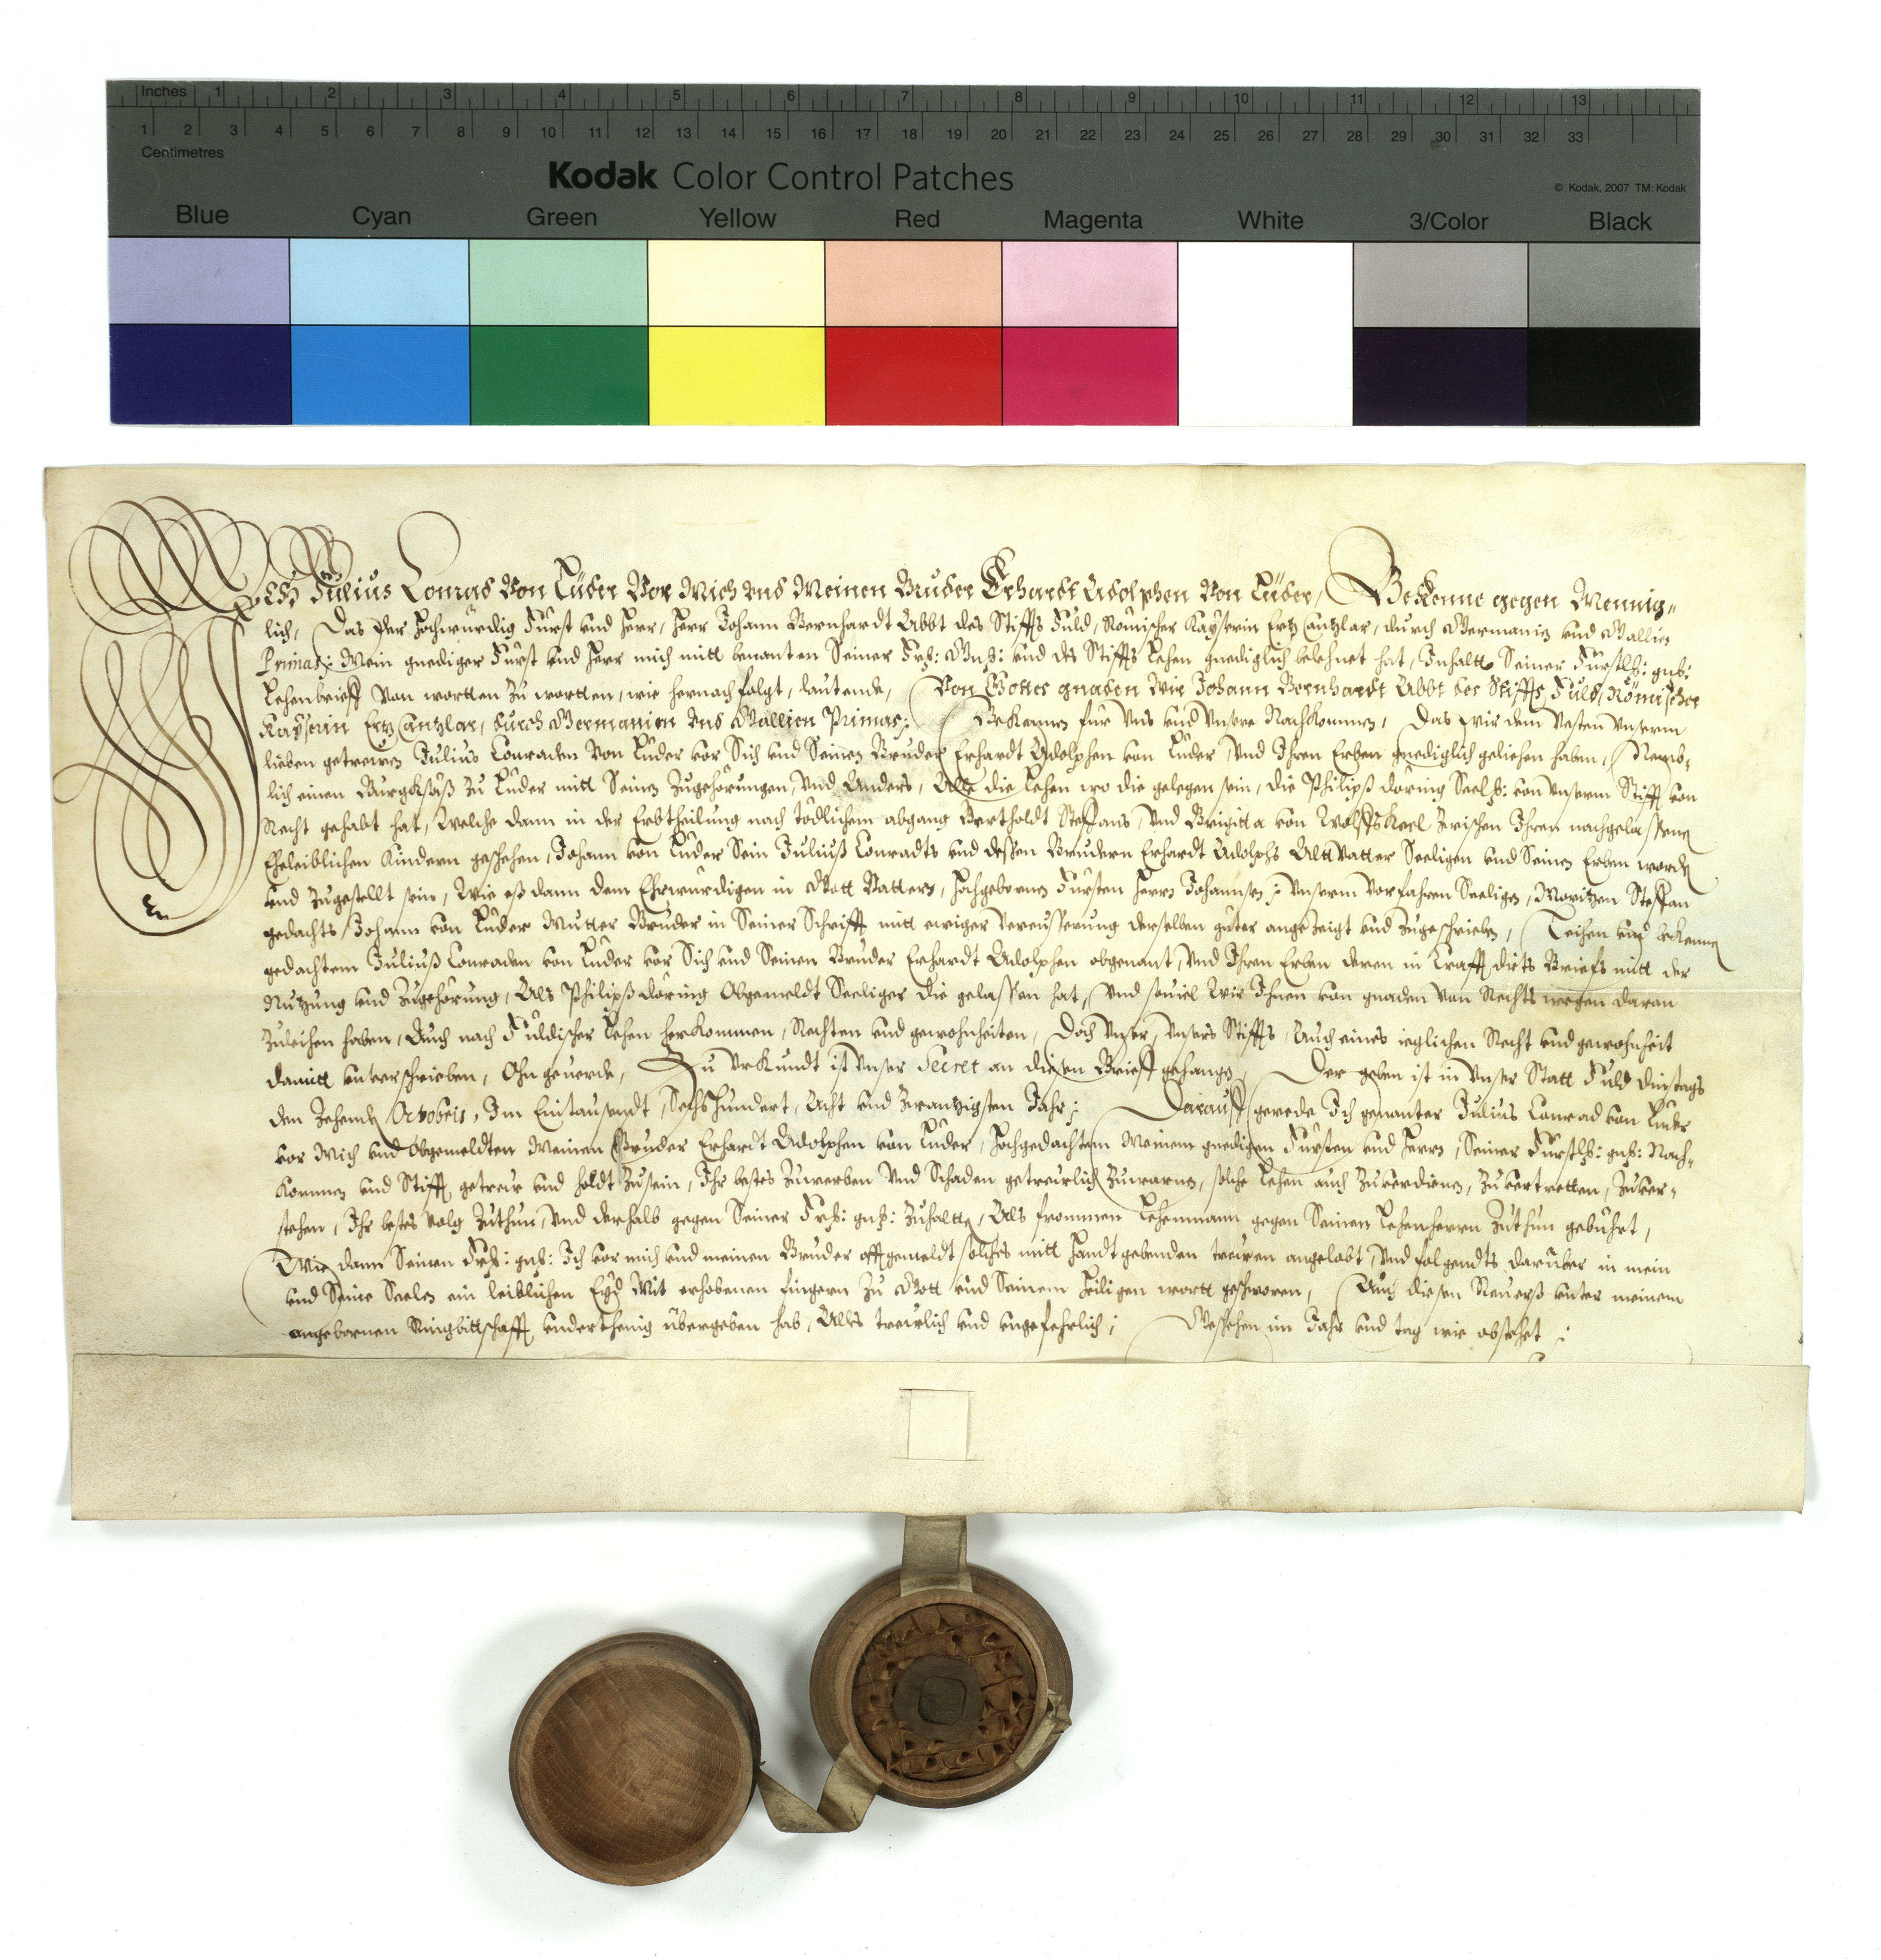 Inches 1 2 3 4 5 6 7 8 9 10 11 12 13
1 2 3 4 5 6 7 8 9 10 11 12 13 14 15 16 17 18 19 20 21 22 23 24 25 26 27 28 29 30 31 32 33
Centimetres
Kodak Color Control Patches
© Kodak, 2007 TM: Kodak
Blue Cyan Green Yellow Red Magenta White 3/Color Black
Ich Julius Conrad von Lüder vor Mich vnd Meinen Bruder Erhardt Adolphen von Lüder, Bekenne gegen Mennig-
lich, Das der Hochwürdig Fürst vnd Herr, Herr Johann Bernhardt Abbt des Stiffts Fuld, Römischer Kayserin Ertz Cantzlar, durch Germanien vnd Gallien
Primas: Mein gnediger Fürst vnd Herr mich mitt benanten Seiner Frh: Gnh: vnd des Stiffts Lehen gnediglich belehnet hat, Inhaltt Seiner Fürstlh: gnh:
Lehenbrieff von wortten zu wortten, wie hernach folgt, lautende, Von Gottes gnaden Wir Johann Bernhardt Abbt des Stiffts Fuld, Römischer
Kayserin Ertz Cantzlar, durch Germanien vnd Gallien Primas: Bekennen für Vns vnd Vnsere Nachkommen, Das wir dem Vesten Vnserm
lieben getrewen Julius Conraden von Lüder vor Sich vnd Seinen Bruder Erhardt Adolphen von Lüder, Vnd Ihren Erben gnediglich geliehen haben, Nemb-
lich einen Burgksäß zu Lüder mitt Seinen Zugehörungen, Vnd Anders, Alle die Lehen wo die gelegen sein, die Philipß döring Seelh: von Vnserm Stifft von
Recht gehabt hat, Welche dann in der Erbtheilung nach tödlichem abgang Bertholdt Steffans, Vnd Brigitta von Wolffskeel Zwischen Ihren nachgelassenen
Eheleiblichen Kindern geschehen, Johann von Lüder Sein Juliuß Conradts vnd dessen Brudern Erhardt Adolphs AltVatter Seeligen vnd Seinen Erben worden
vnd Zugestellt sein, Wie eß dann dem Ehrwürdigen in Gott Vattern, Hochgebornen Fürsten Herrn Johannsen: Vnserm Vorfahren Seeligen, Moritzen Steffan
gedachts, Johann von Lüder Mutter Bruder in Seiner Schrifft mitt ewiger Vereusserung derselben güter angeZeigt vnd Zugeschrieben, Leihen vnd bekennen
gedachtem Juliuß Conraden von Lüder vor Sich vnd Seinen Bruder Erhardt Adolphen obgenant, Vnd Ihren Erben deren in Crafft dits Briefs mitt der
Nutzung vnd Zugehörung, Als Philipß döring Obgemeldt Seeliger die gelassen hat, Vnd souiel Wir Ihnen von gnaden Von Rechts wegen daran
Zuleihen haben, Auch nach Füldischer Lehen Herkommen, Rechten vnd gewohnheiten, Doch Vnser, Vnsers Stiffts, Auch eines ieglichen Recht vnd gewohnheit
damitt vnterschrieben, Ohn geuerde, Zu Vrkundt ist Vnser Secret an diesen Brieff gehangen, Der geben ist in Vnser Statt Fuld dinstags
den Zehenden Octobris, Im Eintausendt, Sechshundert, Acht vnd Zwantzigsten Jahr: Darauff gerede Ich genanter Julius Conrad von Lüder
vor Mich vnd Obgemeldten Meinen Bruder Erhardt Adolphen von Lüder, Hochgedachtem Meinem gnedigen Fürsten vnd Herrn, Seiner Fürstlh: gnh: Nach-
kommen vnd Stifft getrew vnd holdt Zusein, Ihr bestes Zuwerben Vnd Schaden getrewlich Zuwarnen, solche Lehen auch Zuverdienen, Zuvertretten, Zuver-
stehen, Ihr bestes Volg Zuthun, Vnd derhalb gegen Seiner Frh: gnh: Zuhaltten, Als frommen Lehenmann gegen Seinen Lehenherrn Zuthun gebührt,
Wie dann Seinen Frh: gnh: Ich vor mich vnd meinen Bruder offtgemeldt solchs mitt Handtgebenden trewen angelobt, Vnd folgendts darüber in mein
vnd Seine Seelen ein leiblichen Eyd Mit erhobenen fingern Zu Gott vnd Seinem Heiligen wortt geschworen, Auch diesen Reuerß vnter meinem
angebornen Ringbittschafft vnderthenig übergeben hab, Alles trewlich vnd vngefehrlich; Geschehen im Jahr vnd tag wie obstehet :